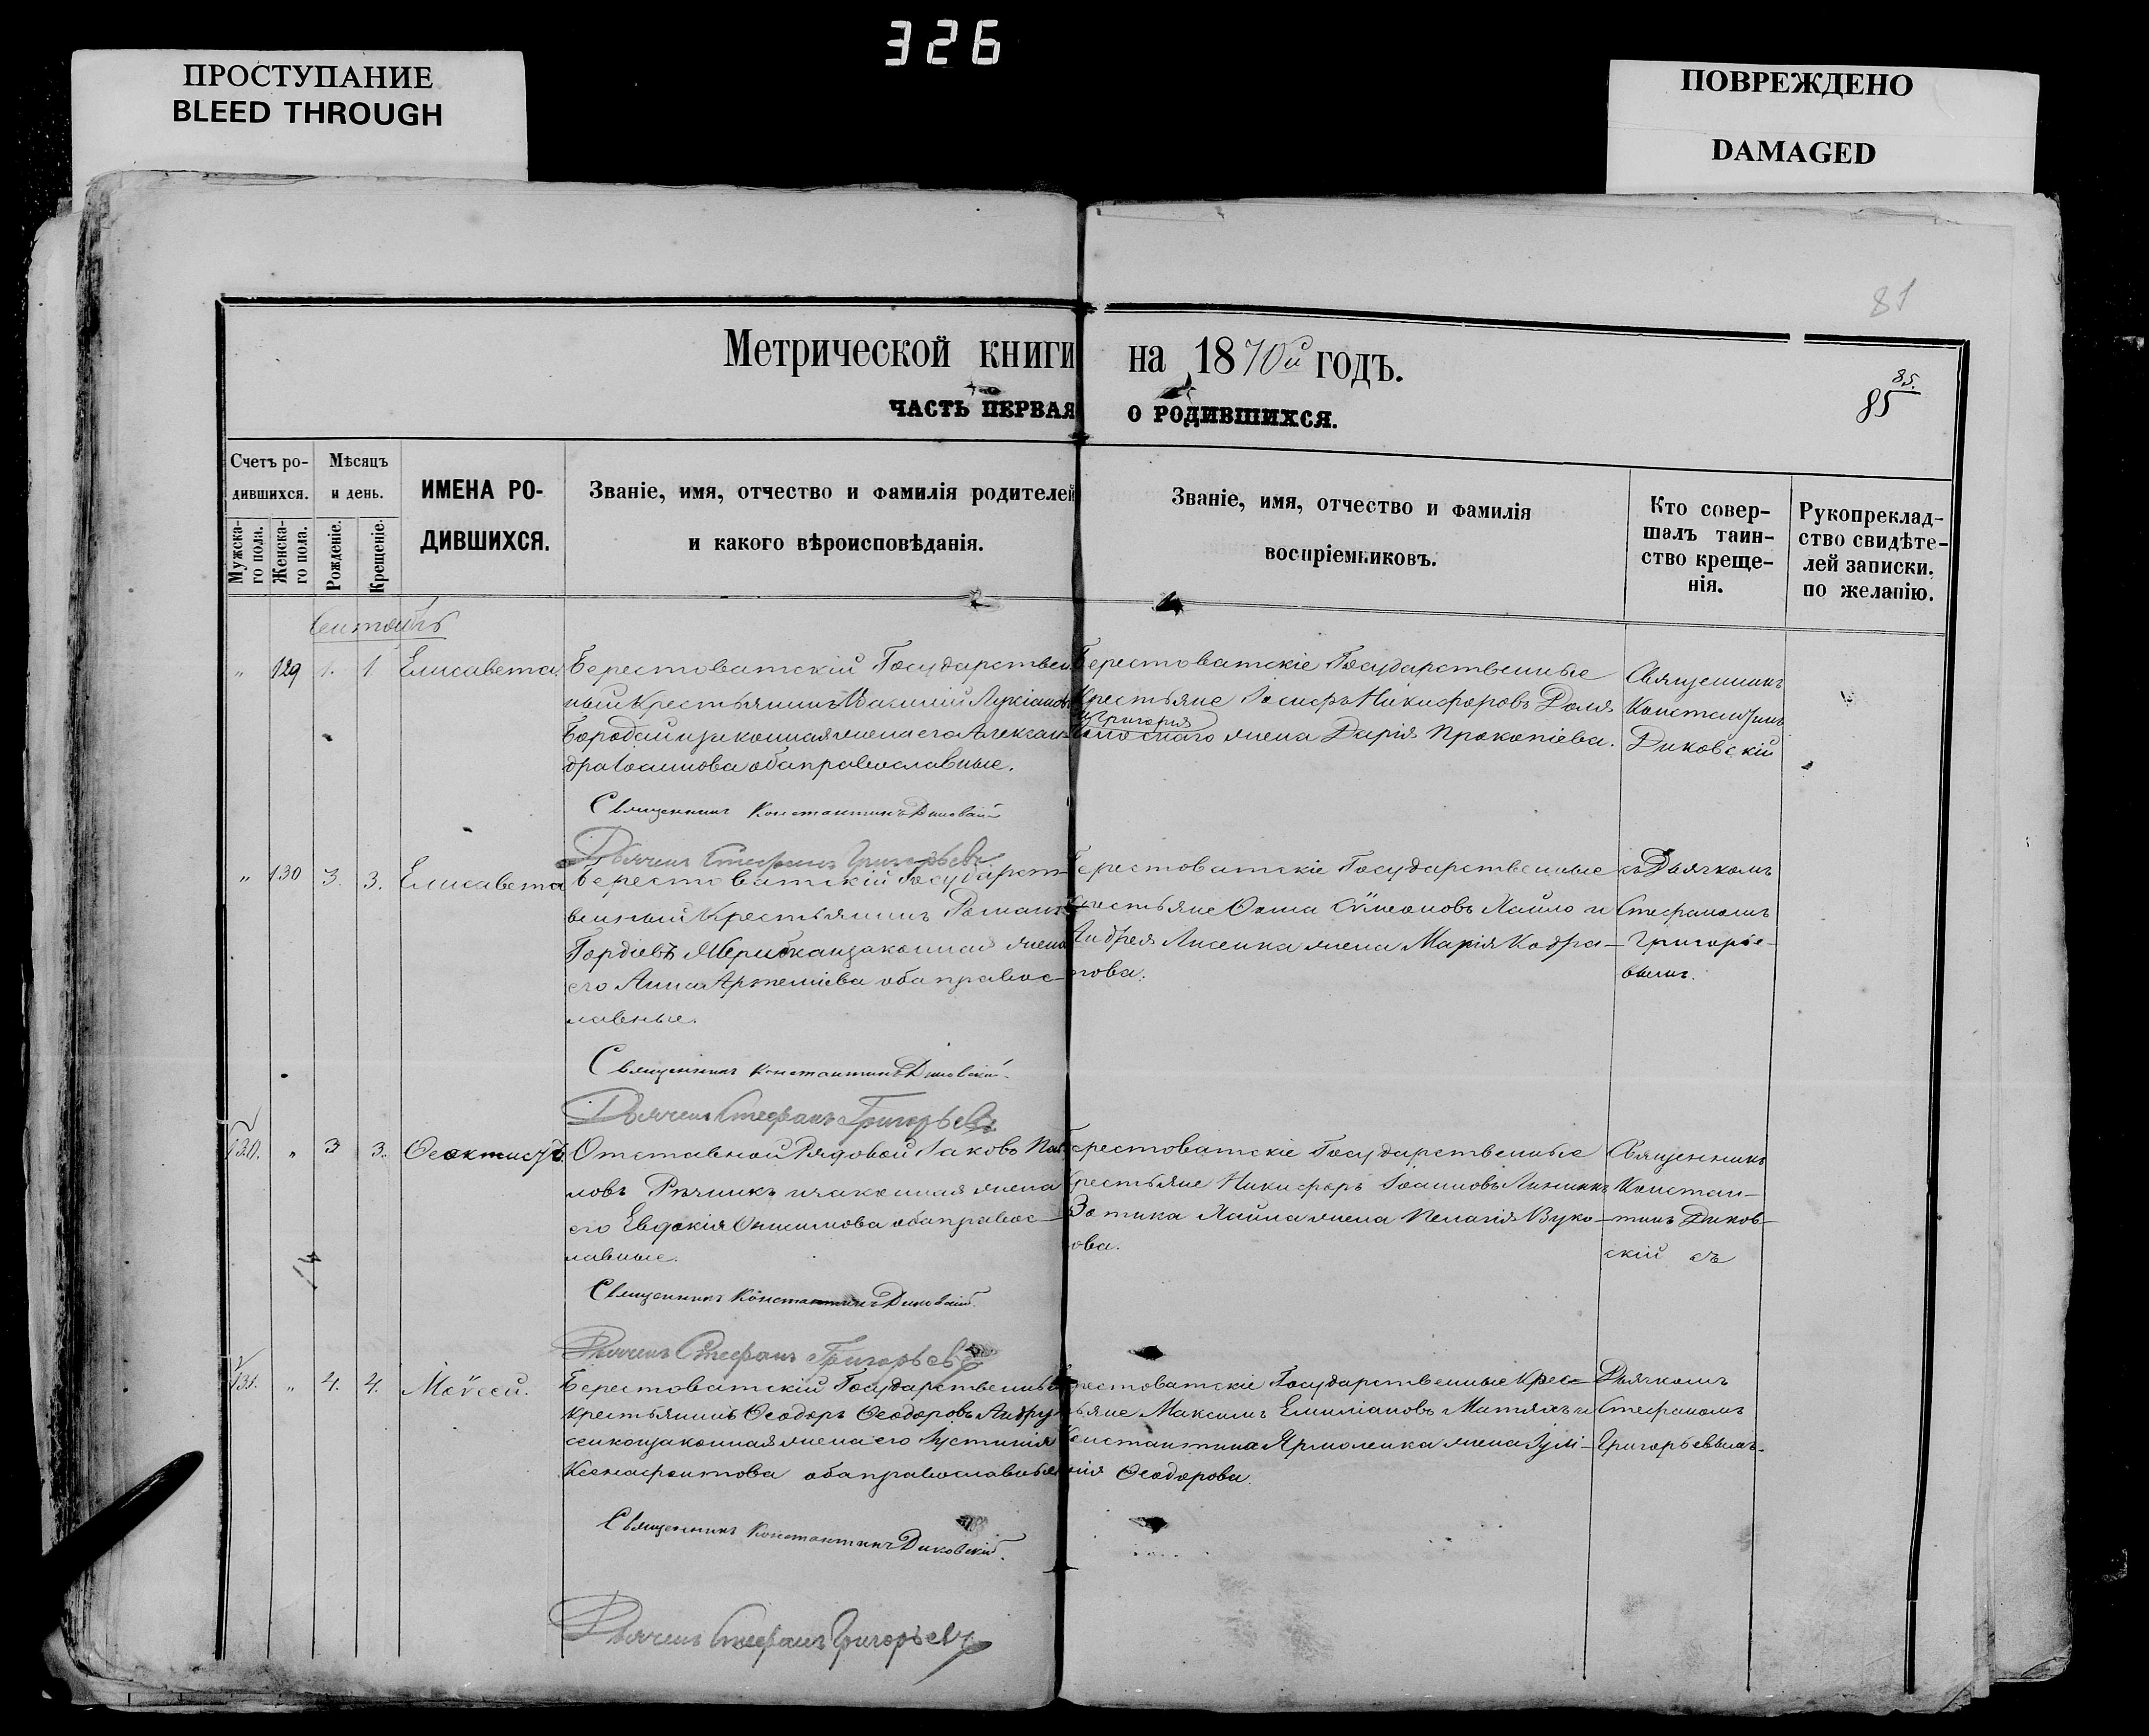 326
ПРОСТУПАНИЕ
BLEED THROUGH
ПОВРЕЖДЕНО
DAMAGED
81
Метрической книги на 1870й годъ.
85.
85
ЧАСТЬ ПЕРВАЯ О РОДИВШИХСЯ.
Счетъ ро-
дившихся.
Мужска-
го пола.
Женска-
го пола.
Мѣсяцъ
и день.
Рожденіе.
Крещеніе.
ИМЕНА РО-
ДИВШИХСЯ.
Званіе, имя, отчество и фамилія родителей
и какого вѣроисповѣданія.
Званіе, имя, отчество и фамилія
воспріемниковъ.
Кто совер-
шалъ таин-
ство креще-
нія.
Рукопреклад-
ство свидѣте-
лей записки.
по желанію.
„ 129 1. 1 Елисавета.
Берестоватскій Государствен
ный Крестьянинъ Василій Лукіановъ
Бородай и законная жена его Алексан
дра Іоаннова оба православные.
Священникъ Константинъ Диковскій
Дьячекъ Стефанъ Григорьевъ
Берестоватскіе Государственные
Крестьяне Іосифъ Никифоровъ Доля
и Григорія
жена Дарія Прокопіева.
Священникъ
Константинъ
Диковскій
„ 130 3. 3. Елисавета
Берестоватскій Государст-
венный Крестьянинъ Романъ
Гордіевъ и законная жена
его Анна Артеміева оба правос-
лавные.
Священникъ Константинъ Диковскій
Дьячекъ Стефанъ Григорьевъ
Берестоватскіе Государственные
Крестьяне Ѳома Сѵмеоновъ Лайло и
Андрея Лисенка жена Марія Кодра-
това.
съ Дьячкомъ
Стефаномъ
Григорье-
вымъ.
130. „ 3 3. Ѳеоктистъ.
Отставной Рядовой Іаковъ Пав
ловъ Рѣчникъ и законная жена
его Евдокія Онисимова оба правос-
лавные.
Священникъ Константинъ Диковскій.
Дьячекъ Стефанъ Григорьевъ
Берестоватскіе Государственные
Крестьяне Никифоръ Іоанновъ
Зотика Лайла жена Пелагія Вуко-
лова.
Священникъ
Констан-
тинъ Диков-
скій съ
131. „ 4. 4. Моѵсей.
Берестоватскій Государственный
Крестьянинъ Ѳеодоръ Ѳеодоровъ Андру
сенко и законная жена его Іустинія
Ксенофонтова оба православные
Священникъ Константинъ Диковскій.
Дьячекъ Стефанъ Григорьевъ
Берестоватскіе Государственные Крес-
тьяне Максимъ Емиліановъ Митяхъ и
Константина Ярмоленка жена Іулі-
анія Ѳеодорова.
Дьячкомъ
Стефаномъ
Григорьевымъ.